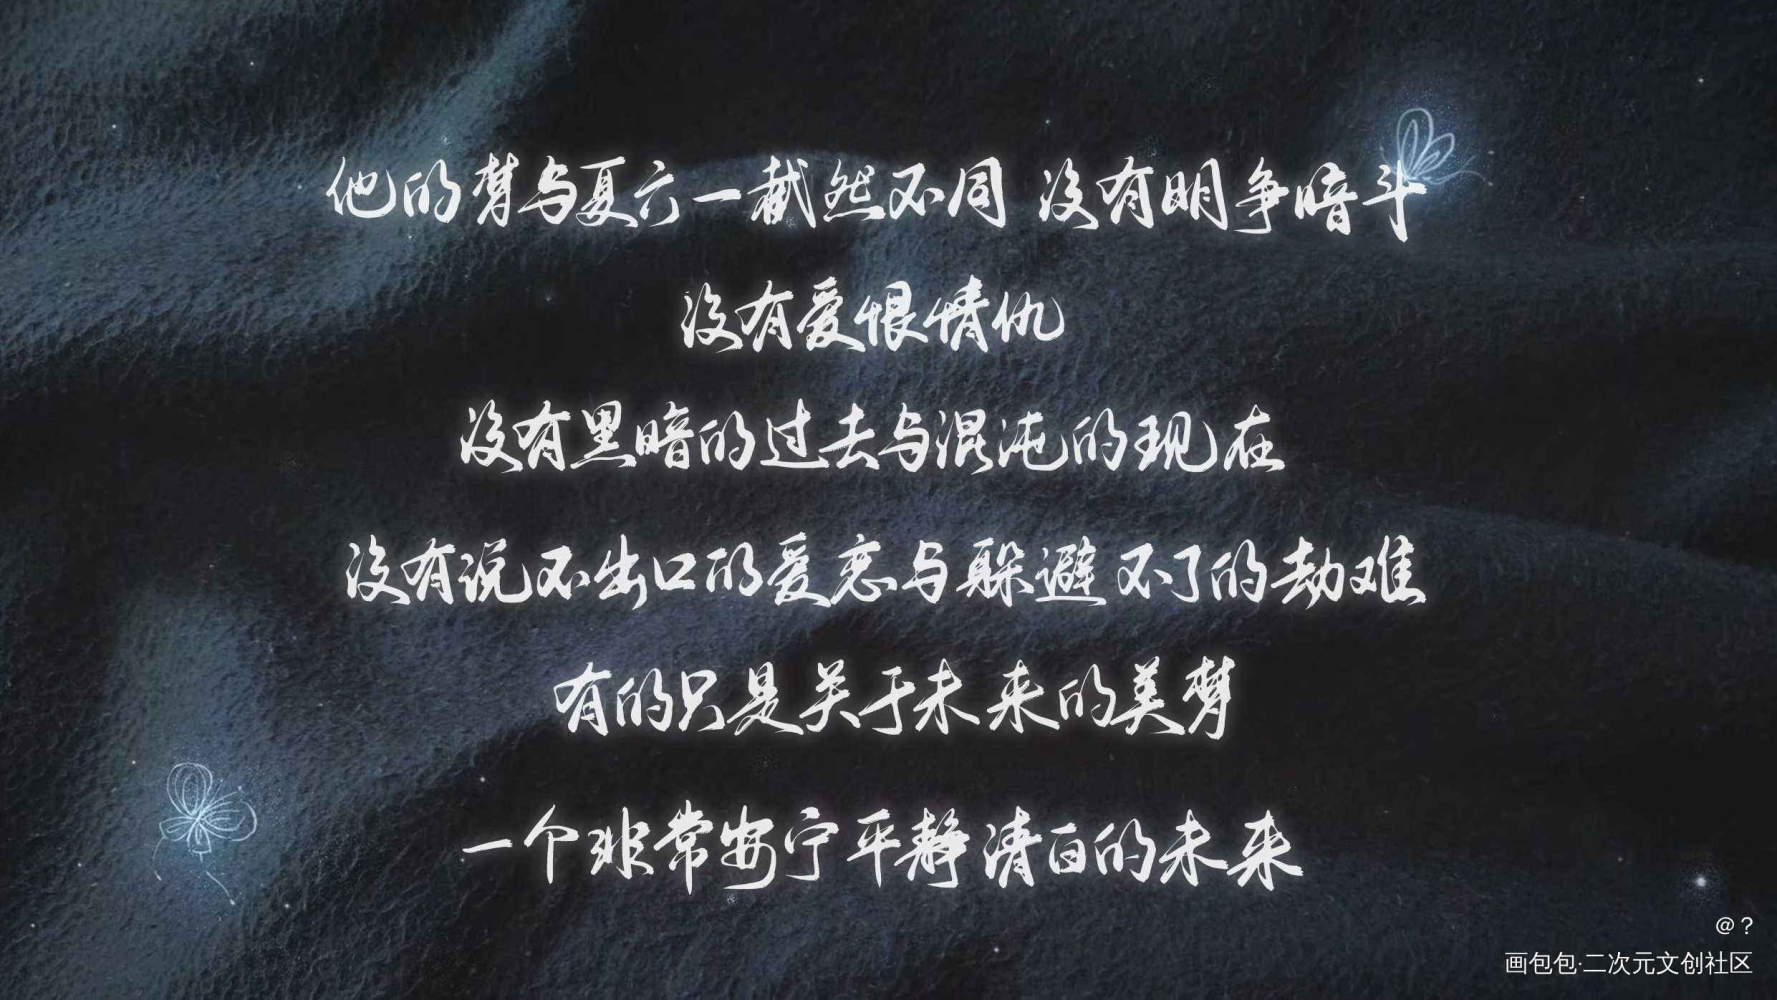 他的梦与夏六一截然不同 没有明争暗斗
没有爱恨情仇
没有黑暗的过去与混沌的现在
没有说不出口的爱恋与躲避不了的劫难
有的只是关于未来的美梦
一个非常安宁平静清白的未来
@？
画包包·二次元文创社区